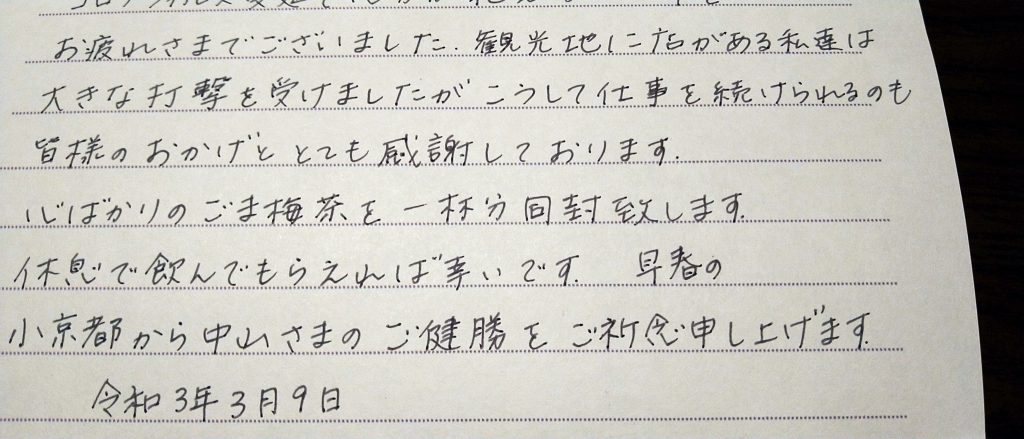 お疲れさまでございました. 観光地に店がある私達は
大きな打撃を受けましたが こうして仕事を続けられるのも
皆様のおかげと とても感謝しております.
心ばかりのごま梅茶を 一杯分同封致します.
休息で飲んでもらえれば幸いです. 早春の
小京都から中山さまの ご健勝を ご祈念申し上げます.
令和3年3月9日